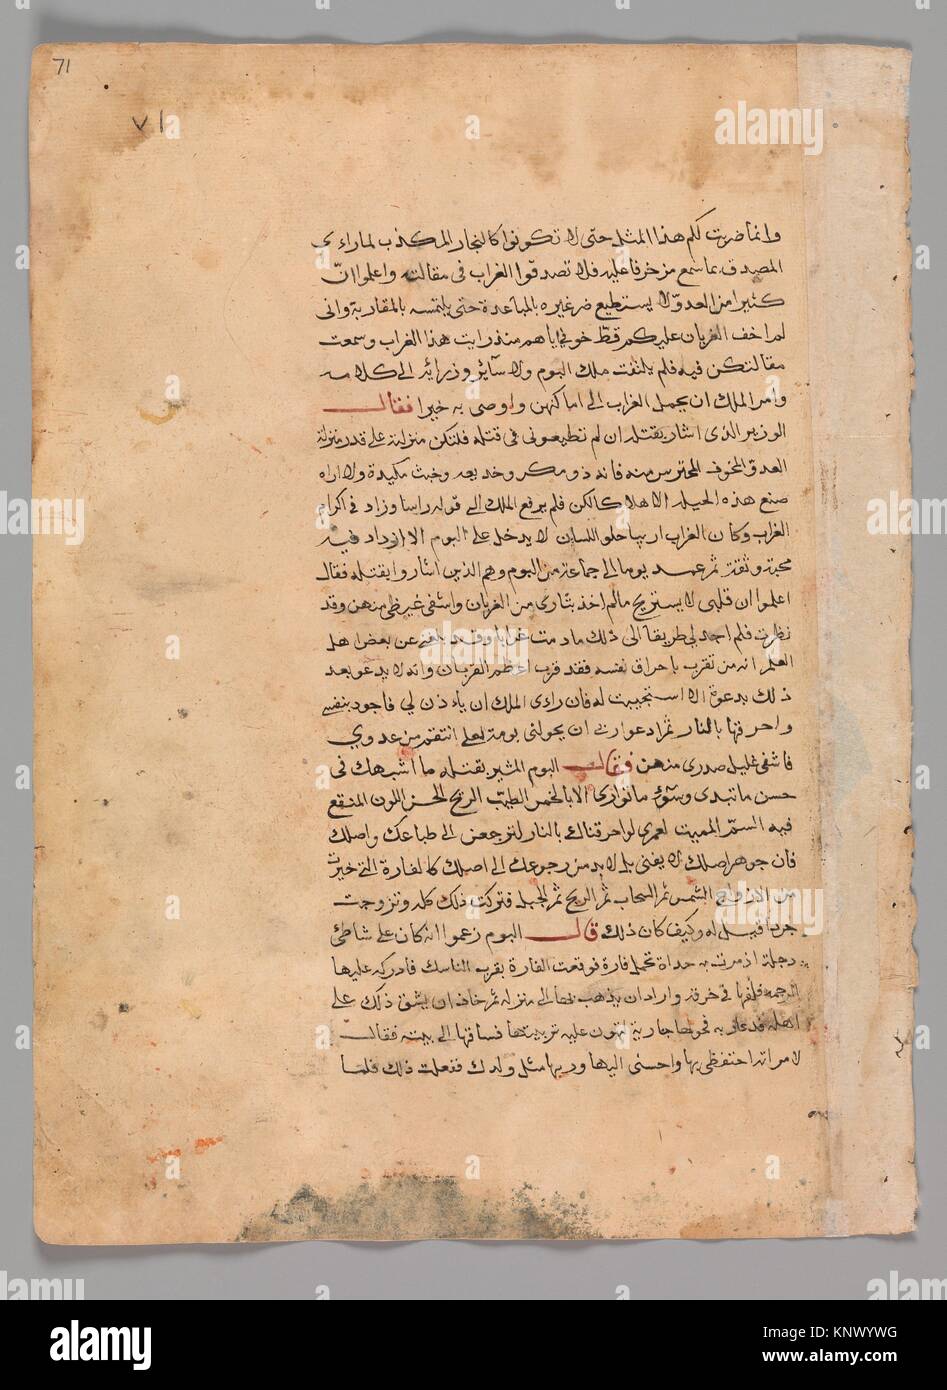 71
٧١
وانما ضربت لكم هذا المثل حتى لا تكونوا كالنجار المكذب لما راءى
المصدق بما سمع من خرفا عليه فلا تصدقوا الغراب فى مقالته واعلموا انّ
كثيرا من العدوّ لا يستطيع ضر غيره بالمباعدة حتى يلتمسه بالمقاربة وانى
لم اخف الغربان عليكم قطّ خوفي اياهم منذ رايت هذا الغراب وسمعت
مقالتكن فيه فلم يلتفت ملك البوم ولا سآئر وزرائه الى كلامه
وامر الملك ان يحمل الغراب الى اماكنهن واوصى به خيرا فقال
الوزير الذى اشار بقتله ان لم تطيعونى فى قتله فلتكن منزلته على قدر منزلة
العدوّ المخوف المحترس منه فانه ذو مكر وخديعه وخبث مكيدة ولا اراه
صنع هذه الحيله الا هلاكا لكن فلم يرفع الملك الى قوله راسا وزاد فى اكرام
الغراب وكان الغراب اريبا حلو اللسان لا يدخل على البوم الا ازداد فيه
محبة وثقة ثم عمد يوما الى جماعة من البوم وهم الذين اشاروا بقتله فقال
اعلموا ان قلبى لا يستريح ما لم اخذ بثارى من الغربان واشفى غيظى منهن وقد
نظرت فلم اجد لى طريقا الى ذلك ما دمت غرابا وقد بلغنى عن بعض اهل
العلم انه من تقرب باحراق نفسه فقد قرب اعظم القربان وانه لا يدعو بعد
ذلك بدعوة الا استجيبت له فان راءى الملك ان ياءذن لي فاجود بنفسى
واحرقها بالنار ثم ادعوا ربى ان يحولنى بومة لعلى انتقم من عدوي
فاشفى غليل صدرى منهن فقال البوم المشير بقتله ما اشبهك فى
حسن ما تبدى وسوء ما توارى الا بالخمر الطيب الريح الحسن اللون المنقع
فيه السمّ المميت لعمرى لو احرقناك بالنار لترجعن الى طباعك واصلك
فان جوهر اصلك لا يفنى بل لا بد من رجوعك الى اصلك كالفارة التى خيرت
من الازواج الشمس ثم السحاب ثم الريح ثم الجبل فتركت ذلك كله وتزوجت
جرذا قيل له وكيف كان ذلك قال البوم زعموا انه كان على شاطئ
دجلة اذ مرت به حداة تحمل فارة فوقعت الفارة بقرب الناسك فادركه عليها
الرحمه فلفها فى خرقة واراد ان يذهب بها الى منزله ثم خاف ان يشق ذلك على
اهله فدعا ربه فحولها جارية لتهون عليه تربيتها فساقها الى بيته فقال
لامراته احتفظى بها واحسنى اليها وربيها مثل ولدك ففعلت ذلك فلما
alamy
Image ID: KNWYWG
www.alamy.com